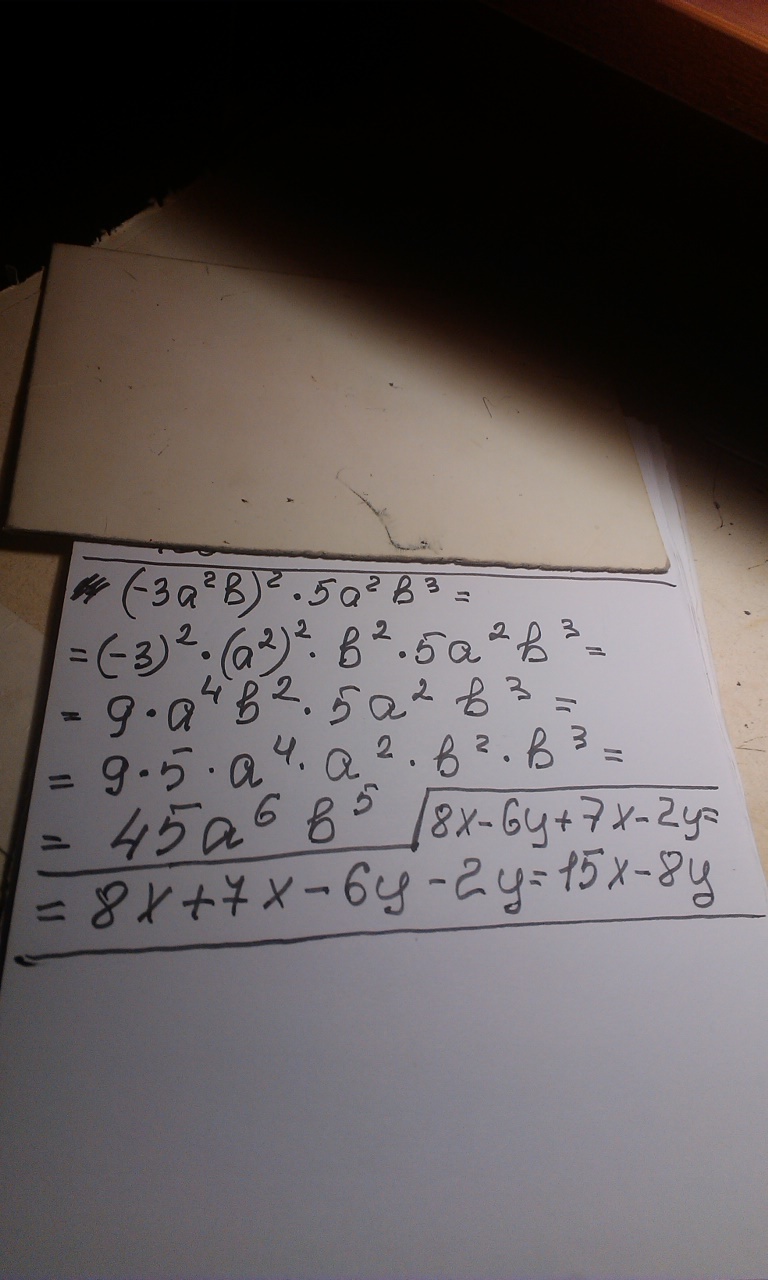 (-3a²b)² · 5a²b³ =
= (-3)² · (a²)² · b² · 5a²b³ =
= 9 · a⁴b² · 5a² b³ =
= 9 · 5 · a⁴ · a² · b² · b³ =
= 45a⁶b⁵
8x-6y+7x-2y=
= 8x+7x-6y-2y=15x-8y